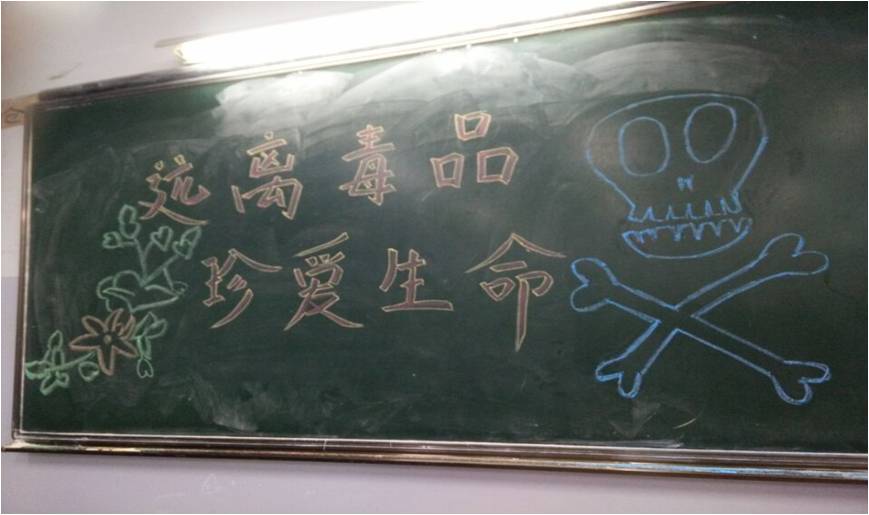 远离毒品
珍爱生命